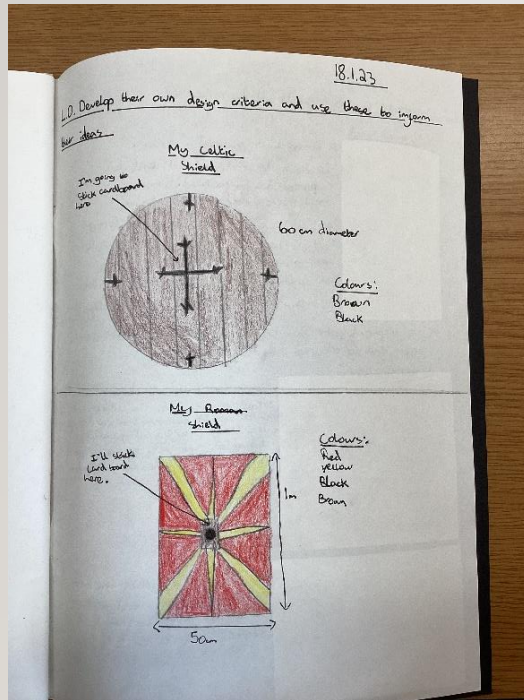 18.1.23
L.O. Develop their own design criteria and use these to inform
their ideas
My Celtic
Shield
I'm going to
stick cardboard
here
60cm diameter
Colours:
Brown
Black
My Roman
Shield
I'll stick
cardboard
here.
Colours:
Red
yellow
Black
Brown
1m
50cm